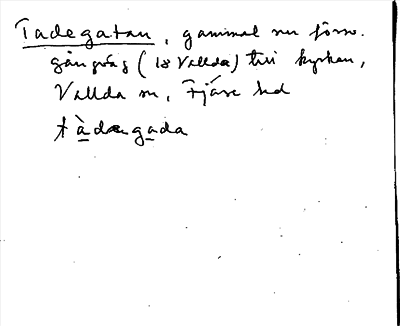 Tadegatan, gammal nu försv.
gångväg (i Vallda) till kyrkan,
Vallda sn, Fjäre hd
tàdangada